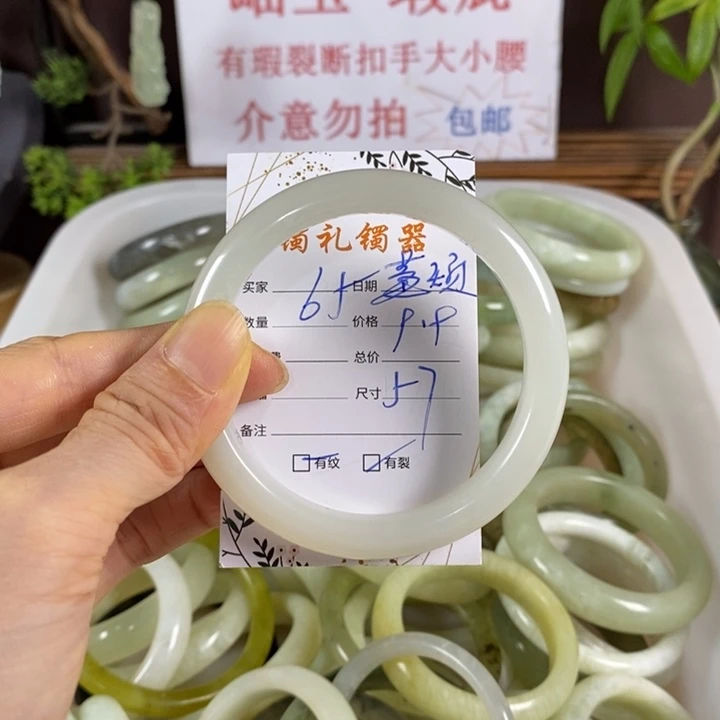 岫玉 瑕疵
有瑕裂断扣手大小腰
介意勿拍 包邮
礼镯器
买家 65 日期
数量 价格 9.9
总价
尺寸 57
备注
有纹 有裂